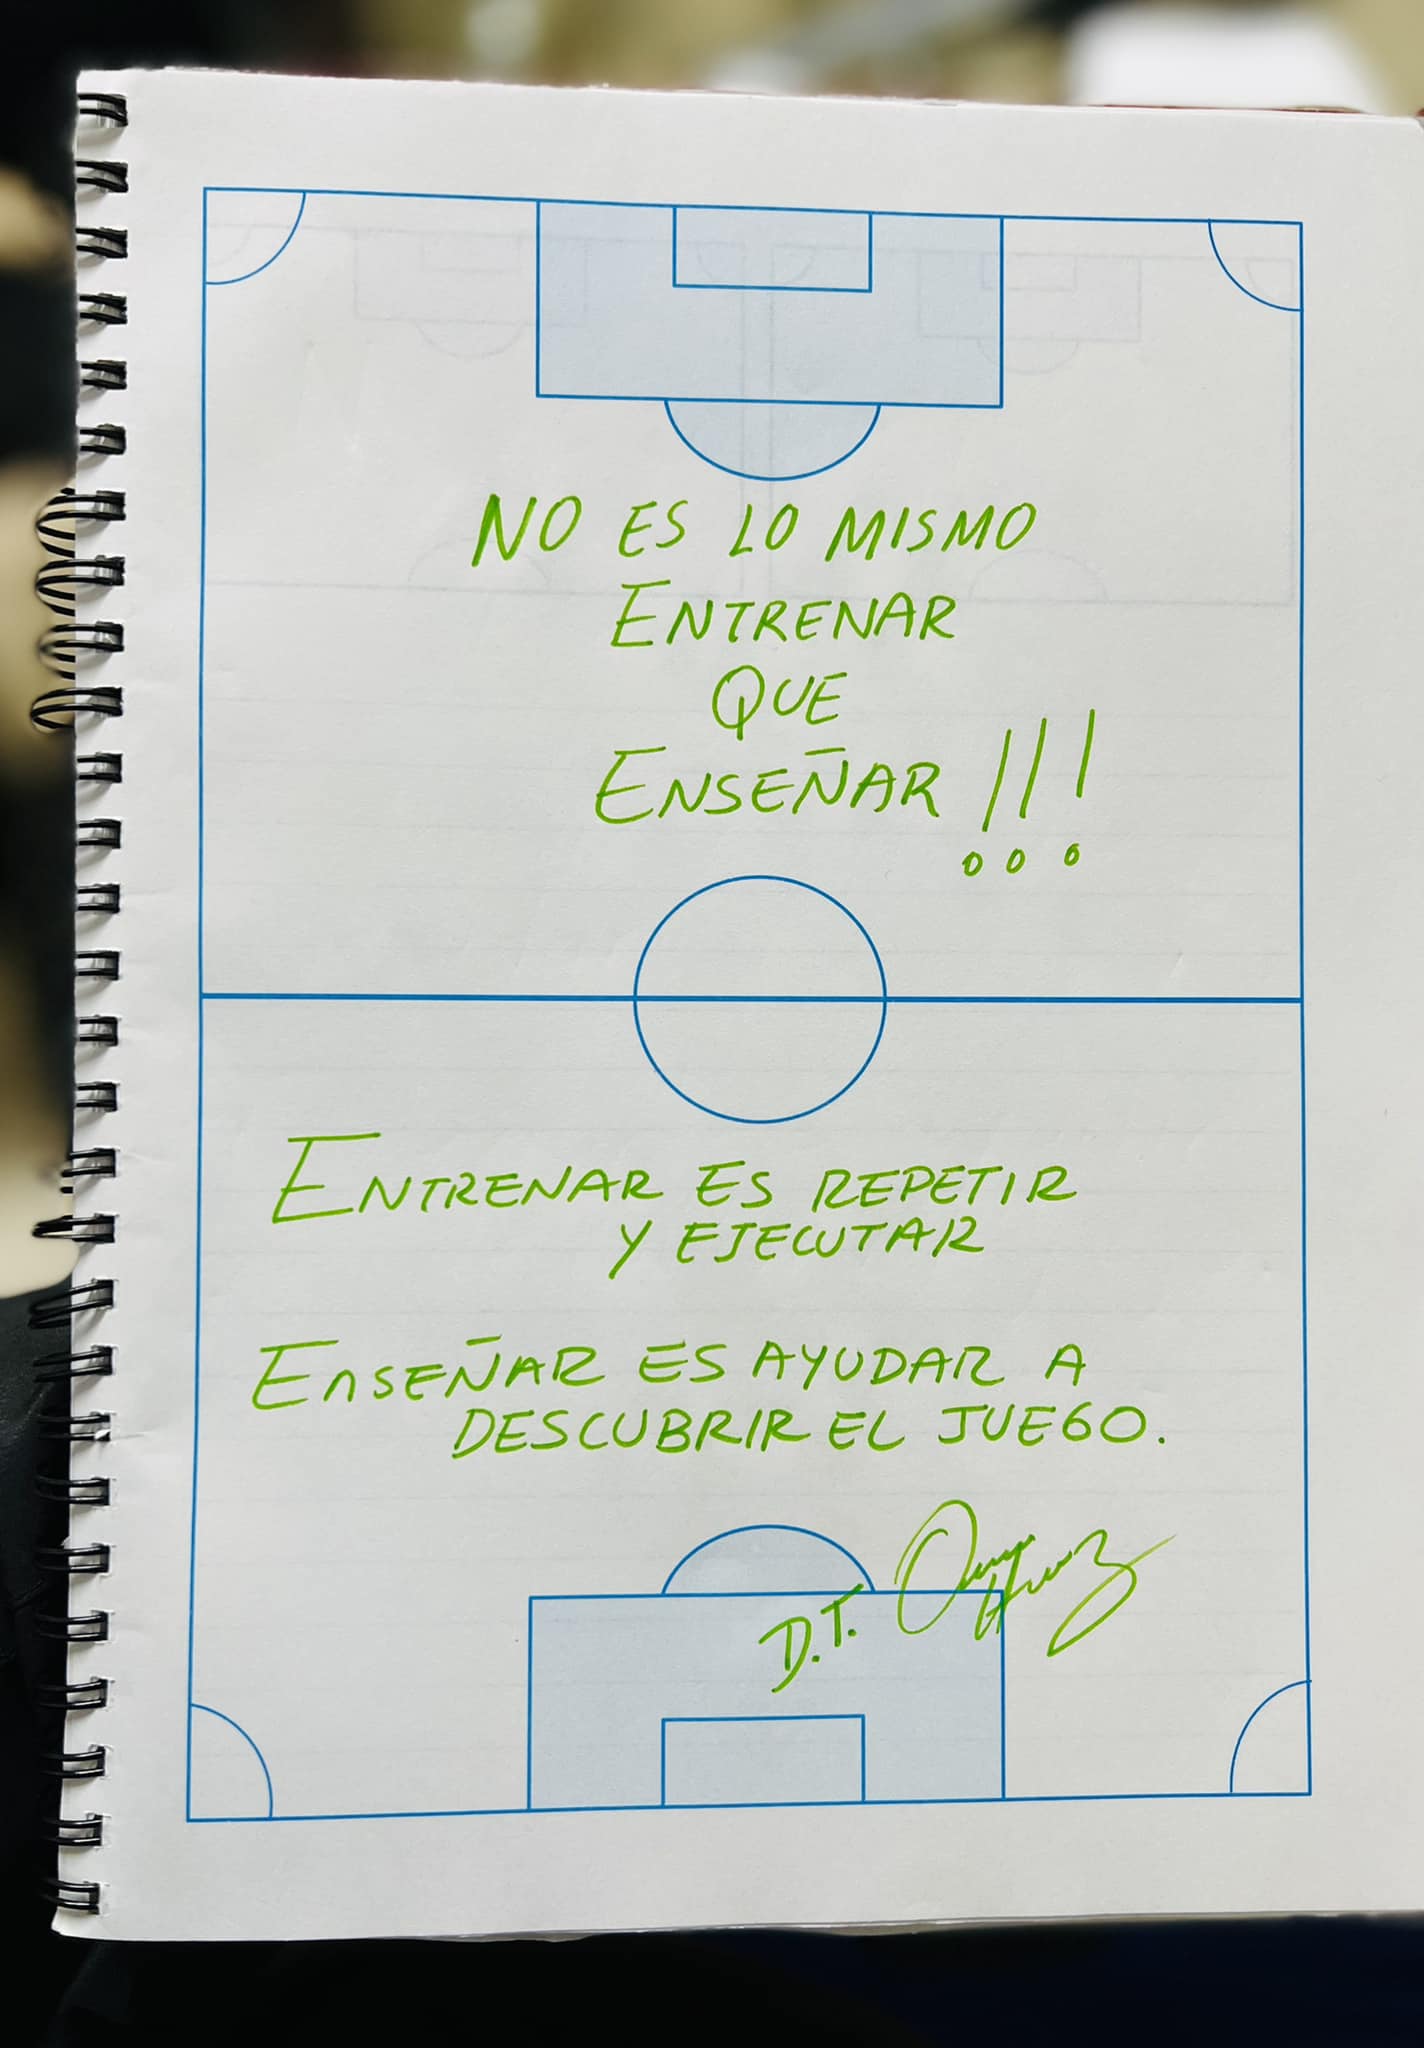 NO ES LO MISMO
ENTRENAR
QUE
ENSEÑAR !!!
ENTRENAR ES REPETIR
Y EJECUTAR
ENSEÑAR ES AYUDAR A
DESCUBRIR EL JUEGO.
D.T.